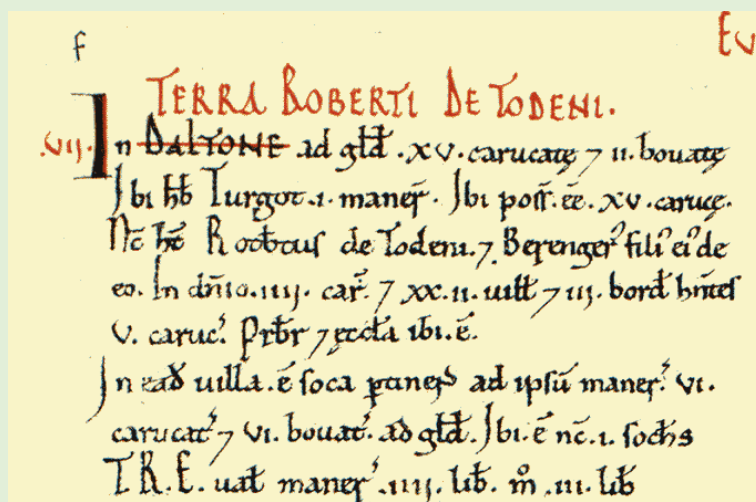 f
EV
TERRA ROBERTI DE TODENI.
.VII. In DALTONE ad gld̄ .xv. carucatę ⁊ ii. bouatę
Ibi hb̄ Turgot .i. maner̄. Ibi poss̄. ēē. xv. carucę.
Nc̄ hē Rotb̄tus de Todeni. ⁊ Berenger' fili' ei' de
eo. In dn̄io. iiii. car̄. ⁊ xx.ii. uilł ⁊ iii. bord̄ hn̄tes
v. caruc'. Prb̄r ⁊ ęccła ibi. ē.
In ead̄ uilla. ē soca ptinens ad ipsū maner'. vi.
carucat' ⁊ vi. bouat'. ad gld̄. Ibi. ē nc̄. i. soch̄s
T.R.E. uał maner'. iiii. lib̄. m̊ .iii. lib̄